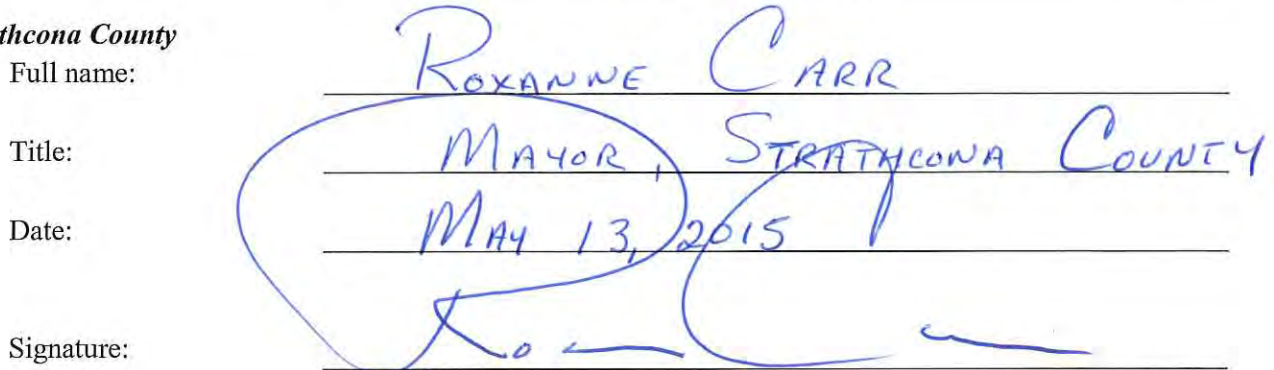 thcona County
Full name: ROXANNE CARR
Title: MAYOR, STRATHCONA COUNTY
Date: MAY 13, 2015
Signature: